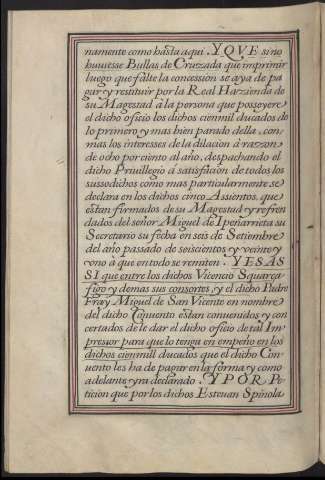 namente como hasta aqui. Y QVE si no
huuiesse Bullas de Cruzada que imprimir
luego que falte la concession se aya de pa
gar y restituir por la Real Hazzienda de
su Magestad à la persona que posseyere
el dicho oficio los dichos cien mil ducados de
lo primero y mas bien parado della, con
mas los interesses de la dilacion à razzon
de ocho por ciento al año, despachando el
dicho Priuillegio à satisfacion de todos los
sussodichos como mas particularmente se
declara en los dichos cinco Assientos, que
estan firmados de su Magestad y refren
dados del señor Miguel de Ipeñarrieta su
Secretario su fecha en seis de Setiembre
del año passado de seiscientos y veinte y
vno à que en todo se remiten. Y ES AS
SI que entre los dichos Vicencio Squarça
figo y demas sus consortes, y el dicho Padre
Fray Miguel de San Vicente en nombre
del dicho Conuento estan conuenidos y con
certados de le dar el dicho oficio de tal Im
pressor para que lo tenga en empeño en los
dichos cien mill ducados que el dicho Con
uento les ha de pagar en la forma y como
adelante yra declarado. Y POR Pe
ticion que por los dichos Esteuan Spinola